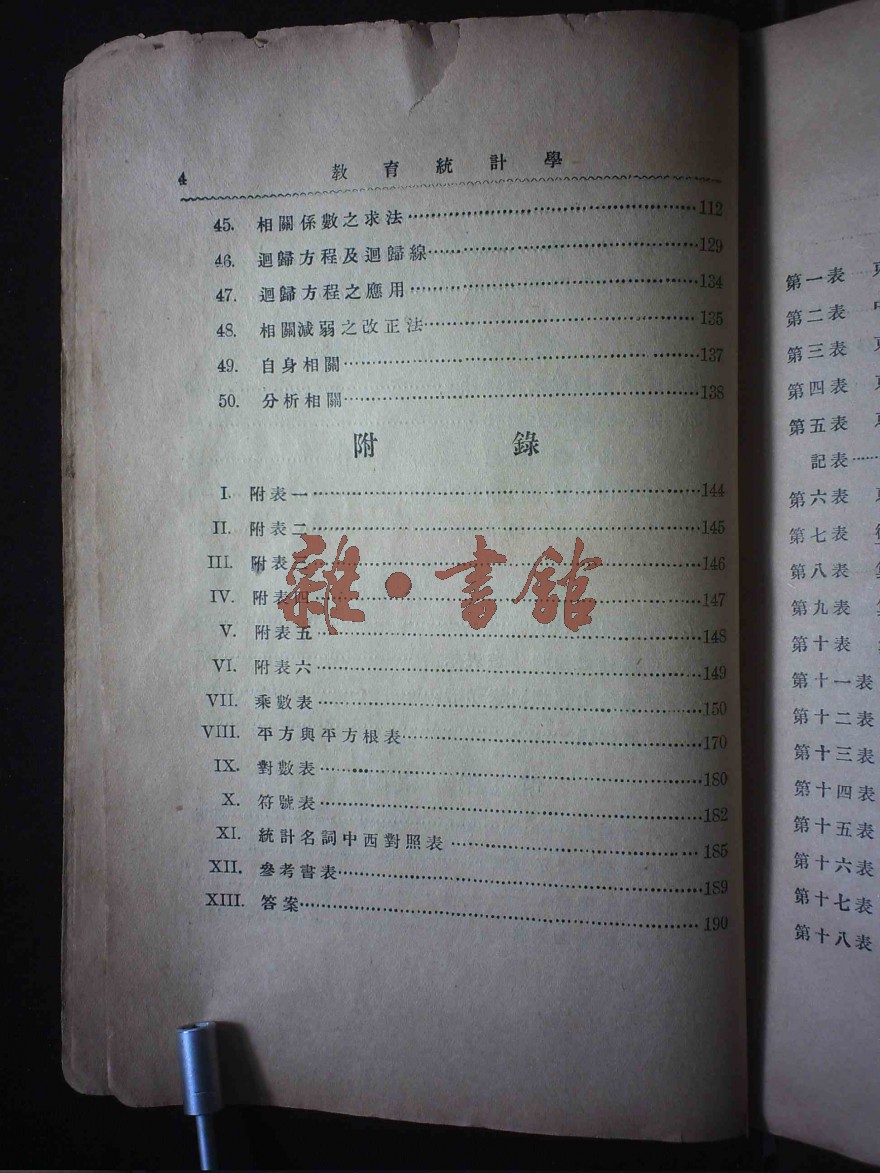 4 教育統計學
45. 相關係數之求法 112
46. 迴歸方程及迴歸線 129
47. 迴歸方程之應用 134
48. 相關減弱之改正法 135
49. 自身相關 137
50. 分析相關 138
附錄
I. 附表一 144
II. 附表二 145
III. 附表三 146
IV. 附表四 147
V. 附表五 148
VI. 附表六 149
VII. 乘數表 150
VIII. 平方與平方根表 170
IX. 對數表 180
X. 符號表 182
XI. 統計名詞中西對照表 185
XII. 參考書表 189
XIII. 答案 190
雜·書館
第一表
第二表
第三表
第四表
第五表
記表
第六表
第七表
第八表
第九表
第十表
第十一表
第十二表
第十三表
第十四表
第十五表
第十六表
第十七表
第十八表